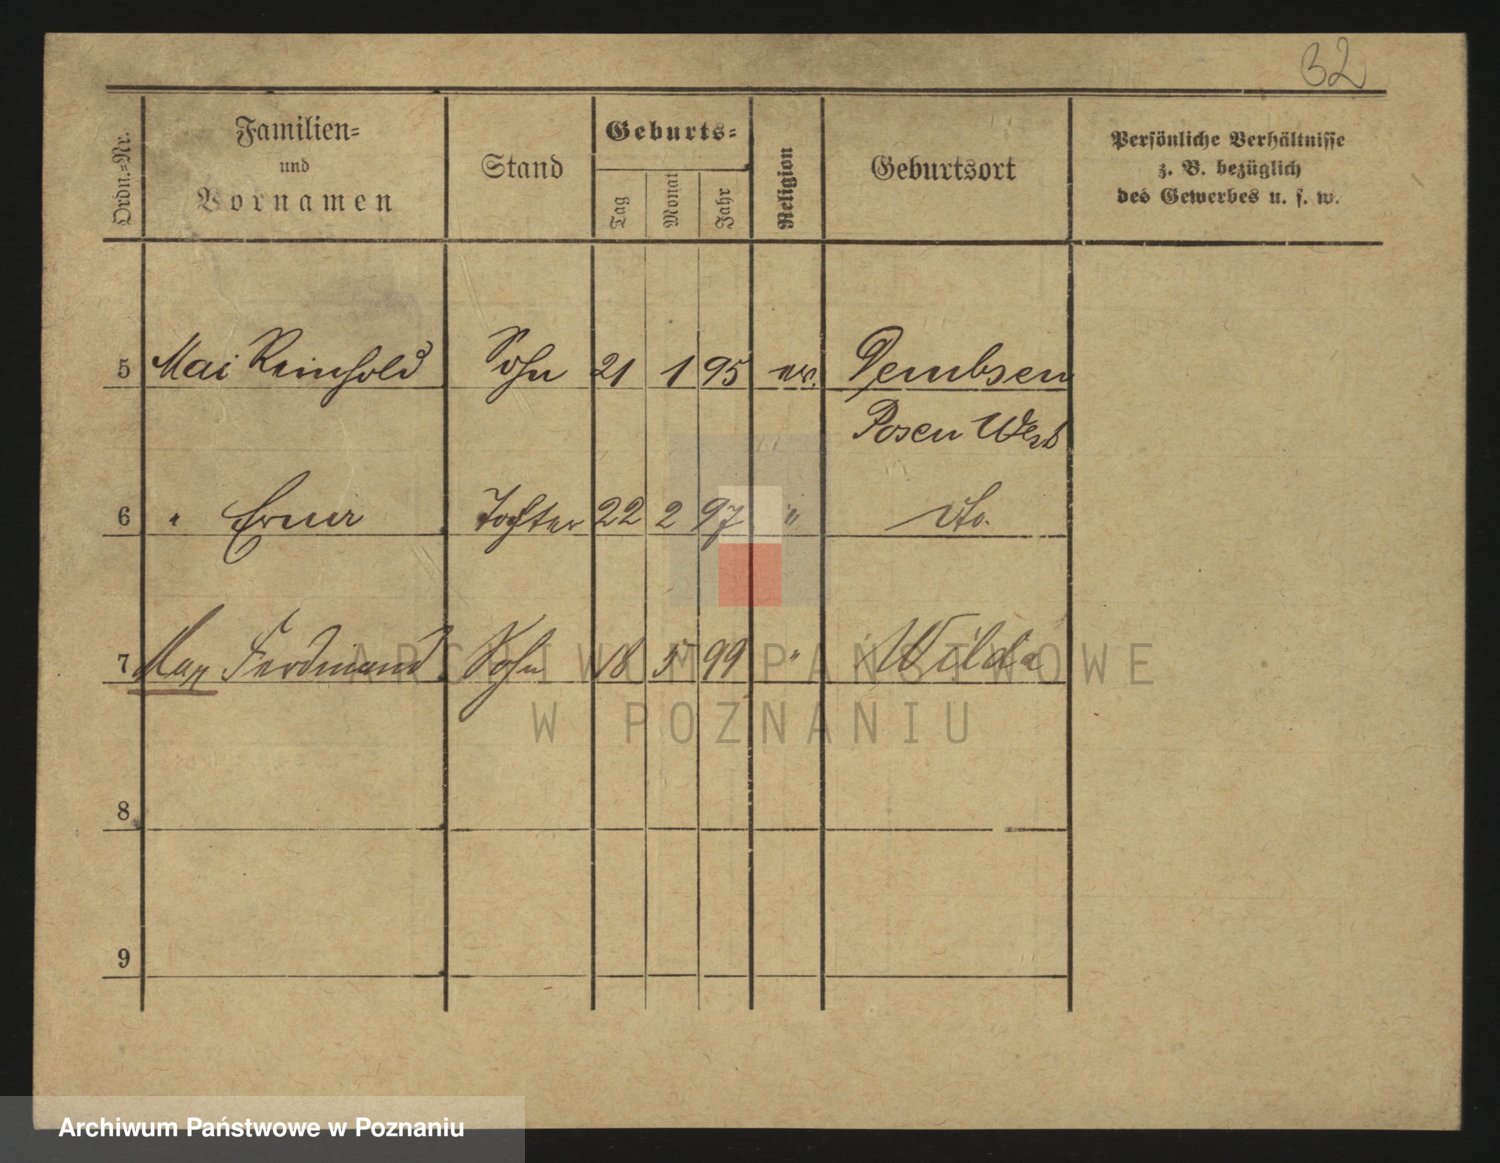 32
Ordn.-Nr. Familien- und Vornamen Stand Geburts- Tag Monat Jahr Religion Geburtsort Persönliche Verhältnisse z. B. bezüglich des Gewerbes u. s. w.
5 Mai Reinhold Sohn 21 1 95 ev. Dembsen
Posen West
6 " Erna Tochter 22 2 97 " dto.
7 Max Ferdinand Sohn 18 5 99 " Wilda
ARCHIWUM PAŃSTWOWE
W POZNANIU
8
9
Archiwum Państwowe w Poznaniu